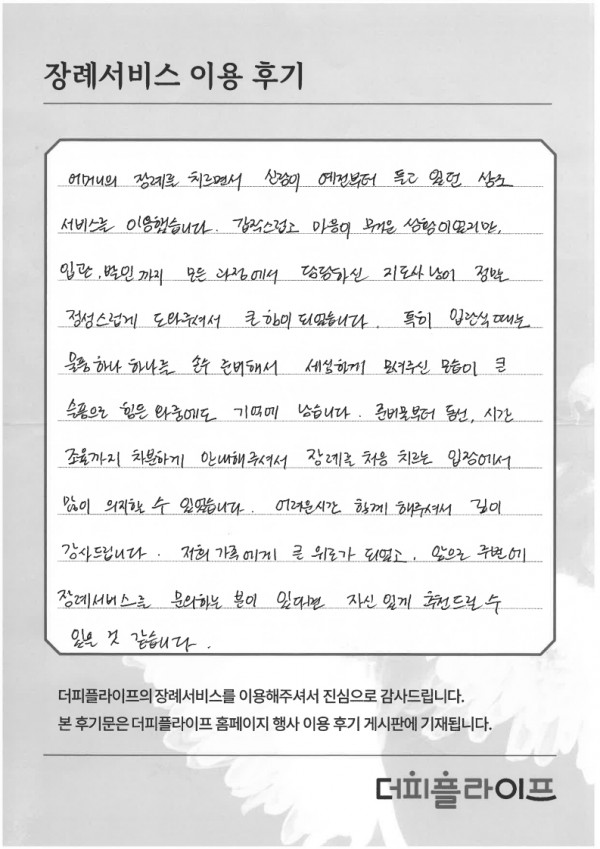 장례서비스 이용 후기
어머니의 장례를 치르면서 신랑이 예전부터 들고 있던 상조
서비스를 이용했습니다. 갑작스럽고 마음이 무거운 상황이었지만,
입관, 발인까지 모든 과정에서 담당하신 지도사님이 정말
정성스럽게 도와주셔서 큰 힘이 되었습니다. 특히 입관식 때는
물품 하나 하나를 손수 준비해서 세심하게 모셔주신 모습이 큰
슬픔으로 힘든 와중에도 기억에 남습니다. 준비물부터 동선, 시간
조율까지 차분하게 안내해주셔서 장례를 처음 치르는 입장에서
많이 의지할 수 있었습니다. 어려운시간 함께 해주셔서 깊이
감사드립니다. 저희 가족에게 큰 위로가 되었고, 앞으로 주변에
장례서비스를 문의하는 분이 있다면 자신 있게 추천드릴 수
있을 것 같습니다.
더피플라이프의 장례서비스를 이용해주셔서 진심으로 감사드립니다.
본 후기문은 더피플라이프 홈페이지 행사 이용 후기 게시판에 기재됩니다.
더피플라이프